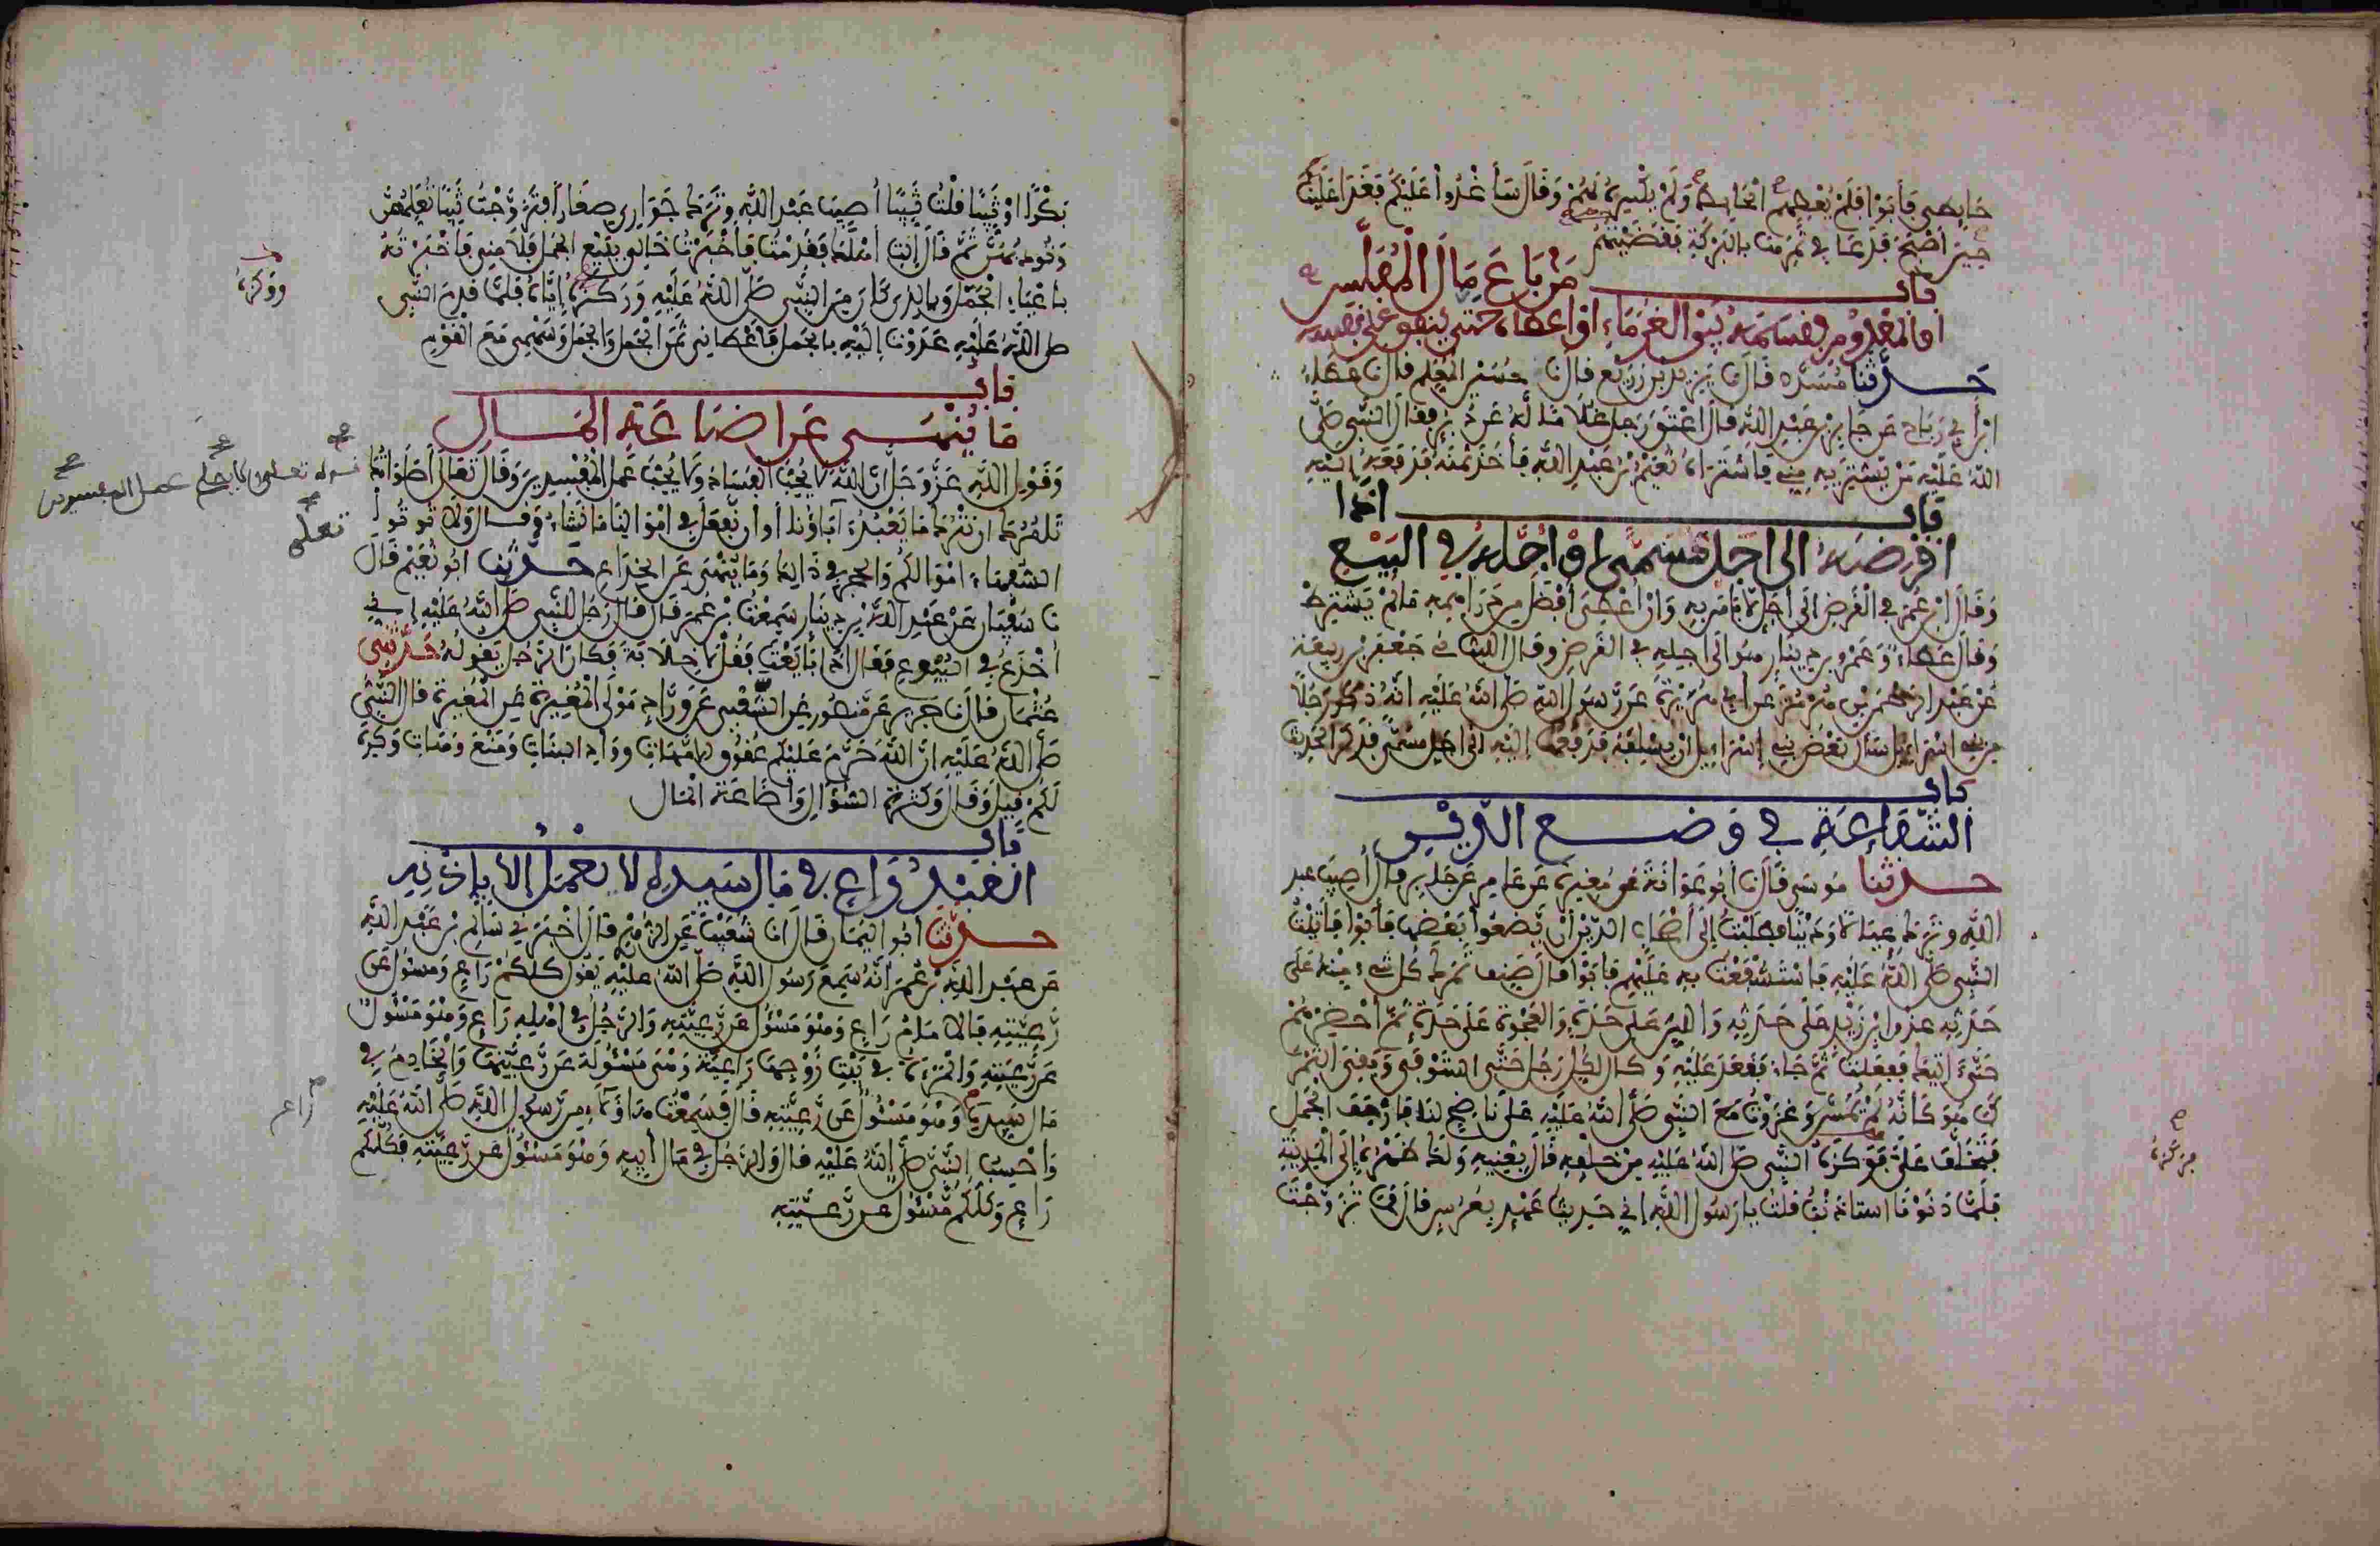 حايطي فأبوا فلم يعطهم الحايط ولم يكسره لهم وقال سأغدوا عليكم فغدا علينا
حين أصبح فدعا في ثمرها بالبركة فقضيتهم
باب من باع مال المفلس
أو المعدم فقسمه بين الغرماء أو أعطاه حتى ينفق على نفسه
حدثنا مسدد قال نا يزيد بن زريع قال نا حسين المعلم قال نا عطاء
ابن أبي رباح عن جابر بن عبد الله قال أعتق رجل غلاما له عن دبر فقال النبي صلى
الله عليه من يشتريه مني فاشتراه نعيم بن عبد الله فأخذ ثمنه فدفعه إليه
باب إذا
أقرضه إلى أجل مسمى أو أجله في البيع
وقال ابن عمر في القرض إلى أجل لا بأس به وإن أعطي أفضل من دراهمه ما لم يشترط
وقال عطاء وعمرو بن دينار هو إلى أجله في القرض وقال الليث ني جعفر بن ربيعة
عن عبد الرحمن بن هرمز عن أبي هريرة عن رسول الله صلى الله عليه أنه ذكر رجلا
من بني إسراءيل سأل بعض بني إسراييل أن يسلفه فدفعها إليه إلى أجل مسمى فذكر الحديث
باب
الشفاعة في وضع الدين
حدثنا موسى قال نا أبو عوانة عن مغيرة عن عامر عن جابر قال أصيب عبد
الله وترك عيالا ودينا فطلبت إلى أصحاب الدين أن يضعوا بعضها فأبوا فأتيت
النبي صلى الله عليه فاستشفعت به عليهم فأبوا فقال صنف تمرك كل شيء منه على
حدته عذق ابن زيد على حدته واللين على حدة والعجوة على حدة ثم أحضرهم
حتى آتيك ففعلت ثم جاء فقعد عليه وكال لكل رجل حتى استوفى وبقي التمر
كما هو كأنه لم يمس وغزوت مع النبي صلى الله عليه على ناضح لنا فأزحف الجمل
فتخلف علي فوكزه النبي صلى الله عليه من خلفه قال بعنيه ولك ظهره إلى المدينة
فلما دنونا استأذنت قلت يا رسول الله إني حديث عهد بعرس قال فما تزوجت
فزكزه
بكرا أو ثيبا قلت ثيبا أصيب عبد الله وترك جواري صغارا فتزوجت ثيبا تعلمهن
وتؤدبهن ثم قال إيت أهلك فقدمت فأخبرت خالي ببيع الجمل فلامني فأخبرته
بإعياء الجمل وبالذي كان من النبي صلى الله عليه ووكزه إياه فلما قدم النبي
صلى الله عليه غدوت إليه بالجمل فأعطاني ثمن الجمل والجمل وسهمي مع القوم
ووكزه
باب
ما ينهى عن إضاعة المال
وقول الله عز وجل إن الله لا يحب الفساد ولا يحب عمل المفسدين وقال تعالى أصلواتك
تأمرك أن نترك ما يعبد آباؤنا أو أن نفعل في أموالنا ما نشاء وقال ولا توتوا
السفهاء أموالكم والحجر في ذلك وما ينهى عن الخداع حدثنا أبو نعيم قال
نا سفيان عن عبد الله بن دينار سمعت بن عمر قال قال رجل للنبي صلى الله عليه إني
أخدع في البيوع فقال إذا بايعت فقل لا خلابة فكان الرجل يقوله حدثني
عثمان قال نا جرير عن منصور عن الشعبي عن وراد مولى المغيرة عن المغيرة قال النبي
صلى الله عليه إن الله حرم عليكم عقوق الأمهات ووأد البنات ومنع وهات وكره
لكم قيل وقال وكثرة السؤال وإضاعة المال
لا يصلح عمل المفسدين
تعلى
باب
العبد راع في مال سيده لا يعمل إلا بإذنه
حدثنا أبو اليمان قال أنا شعيب عن الزهري قال أخبرني سالم بن عبد الله
عن عبد الله بن عمر أنه سمع رسول الله صلى الله عليه يقول كلكم راع ومسئول عن
رعيته فالامام راع وهو مسئول عن رعيته والرجل في أهله راع وهو مسئول
عن رعيته والمرأة في بيت زوجها راعية وهي مسئولة عن رعيتها والخادم في
مال سيده وهو مسئول عن رعيته قال فسمعت هؤلاء من رسول الله صلى الله عليه
وأحسب النبي صلى الله عليه قال والرجل في مال أبيه وهو مسئول عن رعيته فكلكم
راع وكلكم مسئول عن رعيته
راع